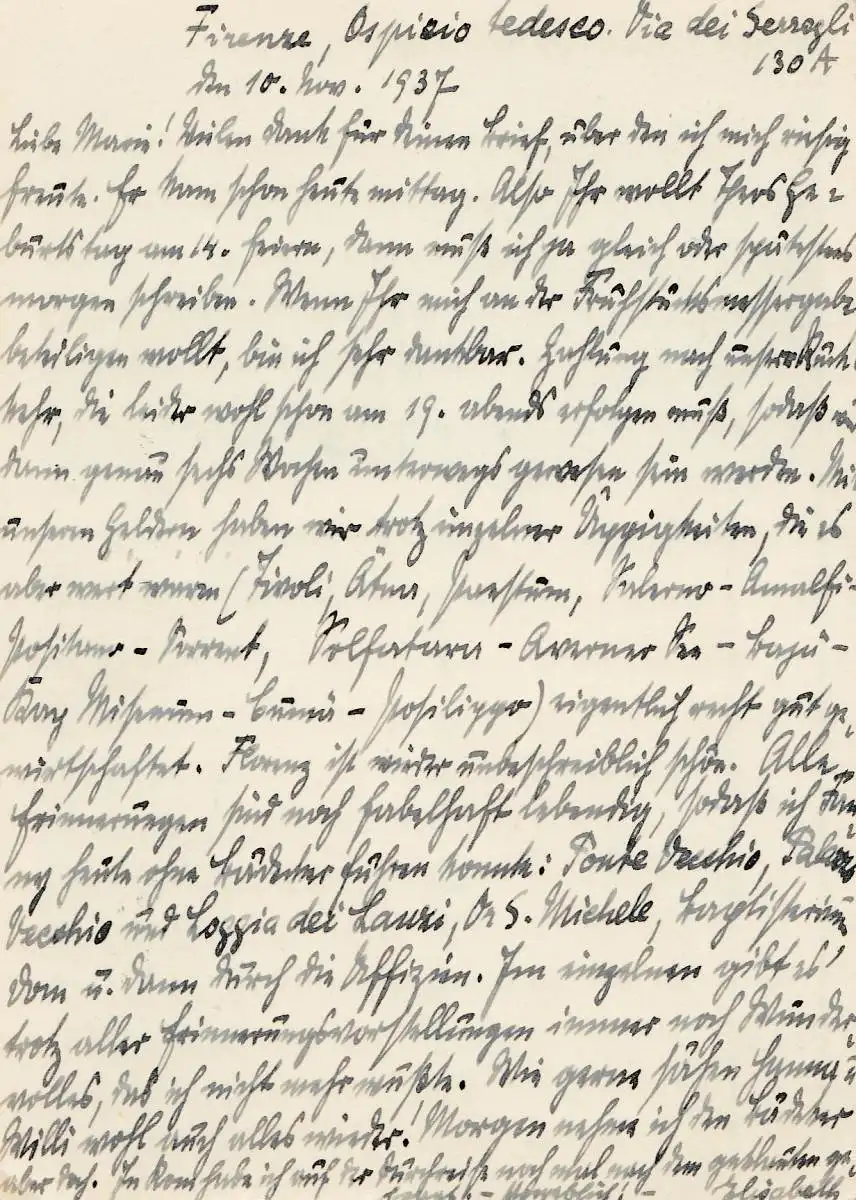 Firenze, Ospizio tedesco. Via dei Serragli
130 A
den 10. Nov. 1937
Liebe Marie! Vielen Dank für Deinen Brief, über den ich mich riesig
freute. Er kam schon heute mittag. Also Ihr wollt Theos Ge-
burtstag am 14. feiern, dann muß ich ja gleich oder spätestens
morgen schreiben. Wenn Ihr mich an der Frühstücksmessergabe
beteiligen wollt, bin ich sehr dankbar. Zahlung nach unsrer Rück-
kehr, die leider wohl schon am 19. abends erfolgen muß, sodaß wir
dann genau sechs Wochen unterwegs gewesen sein werden. Mit
unseren Geldern haben wir trotz einzelner Üppigkeiten, die es
aber wert waren (Tivoli, Ätna, Paestum, Salerno - Amalfi -
Positano - Sorrent, Solfatara - Averner See - Bajä -
Kap Misenum - Cumä - Posilippo) eigentlich recht gut ge-
wirtschaftet. Florenz ist wieder unbeschreiblich schön. Alle
Erinnerungen sind noch fabelhaft lebendig, sodaß ich Fan-
ny heute ohne Bädeker führen konnte: Ponte Vecchio, Palazzo
Vecchio und Loggia dei Lanzi, Or S. Michele, Baptisterium
Dom u. dann durch die Uffizien. Im einzelnen gibt es
trotz aller Erinnerungsvorstellungen immer noch Wunder-
volles, das ich nicht mehr wußte. Wie gerne sähen Hanna u
Willi wohl auch alles wieder! Morgen nehme ich den Bädeker
aber doch. In Rom habe ich auf der Durchreise noch mal nach dem geblauten ge-
Elisabeth